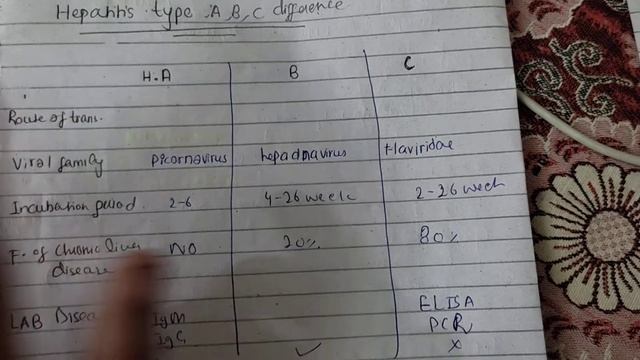 Hepatitis type A, B, C difference
H.A B C
Route of trans.
Viral family Picornavirus hepadnavirus Flaviridae
Incubation period 2-6 4-26 week 2-26 week
F. of Chronic liver NO 20% 80%
disease
LAB IgM ELISA
IgG PCR
✓ x